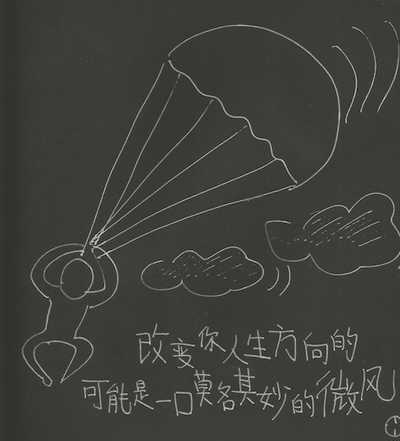 改变你人生方向的
可能是一口莫名其妙的微风